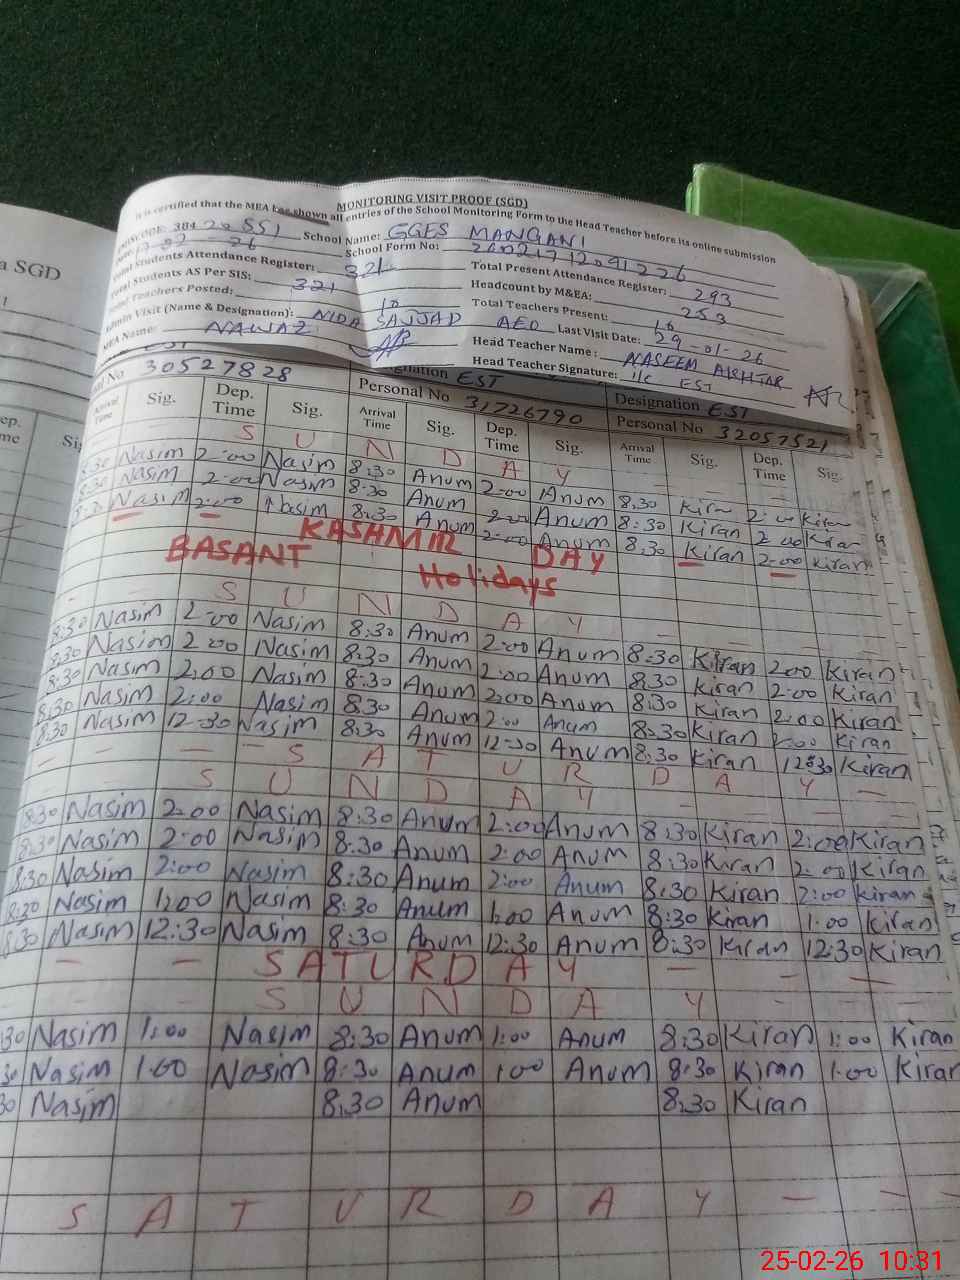 a SGD
MONITORING VISIT PROOF (SGD)
It is certified that the MEA has shown all entries of the School Monitoring Form to the Head Teacher before its online submission
384 20551 School Name: GGES MANGANI
School Form No:
Total Students Attendance Register: 321 Total Present Attendance Register: 293
Total Students AS Per SIS: 321 Headcount by M&EA: 253
Total Teachers Posted: 10 Total Teachers Present: 10
Admin Visit (Name & Designation): NIDA SAJJAD AEO Last Visit Date: 29-01-26
MEA Name: NAWAZ Head Teacher Name: NASEEM AKHTAR
Head Teacher Signature: I/c EST
EST Designation EST
No 30527828 Personal No 31726790 Personal No 32057521
Arrival Time Sig. Dep. Time Sig. Arrival Time Sig. Dep. Time Sig. Arrival Time Sig. Dep. Time Sig.
S U N D A Y
8:30 Nasim 2:00 Nasim 8:30 Anum 2:00 Anum 8:30 Kiran 2:00 Kiran
8:30 Nasim 2:00 Nasim 8:30 Anum 2:00 Anum 8:30 Kiran 2:00 Kiran
8:30 Nasim 2:00 Nasim 8:30 Anum 2:00 Anum 8:30 Kiran 2:00 Kiran
KASHMIR DAY
BASANT Holidays
S U N D A Y
8:30 Nasim 2:00 Nasim 8:30 Anum 2:00 Anum 8:30 Kiran 2:00 Kiran
8:30 Nasim 2:00 Nasim 8:30 Anum 2:00 Anum 8:30 Kiran 2:00 Kiran
8:30 Nasim 2:00 Nasim 8:30 Anum 2:00 Anum 8:30 Kiran 2:00 Kiran
8:30 Nasim 2:00 Nasim 8:30 Anum 2:00 Anum 8:30 Kiran 2:00 Kiran
8:30 Nasim 12:30 Nasim 8:30 Anum 12:30 Anum 8:30 Kiran 12:30 Kiran
– – – S A T U R D A Y –
S U N D A Y – –
8:30 Nasim 2:00 Nasim 8:30 Anum 2:00 Anum 8:30 Kiran 2:00 Kiran
8:30 Nasim 2:00 Nasim 8:30 Anum 2:00 Anum 8:30 Kiran 2:00 Kiran
8:30 Nasim 2:00 Nasim 8:30 Anum 2:00 Anum 8:30 Kiran 2:00 Kiran
8:30 Nasim 1:00 Nasim 8:30 Anum 1:00 Anum 8:30 Kiran 1:00 Kiran
8:30 Nasim 12:30 Nasim 8:30 Anum 12:30 Anum 8:30 Kiran 12:30 Kiran
– – S A T U R D A Y – – –
– – S U N D A Y – –
30 Nasim 1:00 Nasim 8:30 Anum 1:00 Anum 8:30 Kiran 1:00 Kiran
30 Nasim 1:00 Nasim 8:30 Anum 1:00 Anum 8:30 Kiran 1:00 Kiran
30 Nasim 8:30 Anum 8:30 Kiran
S A T U R D A Y – – –
25-02-26 10:31